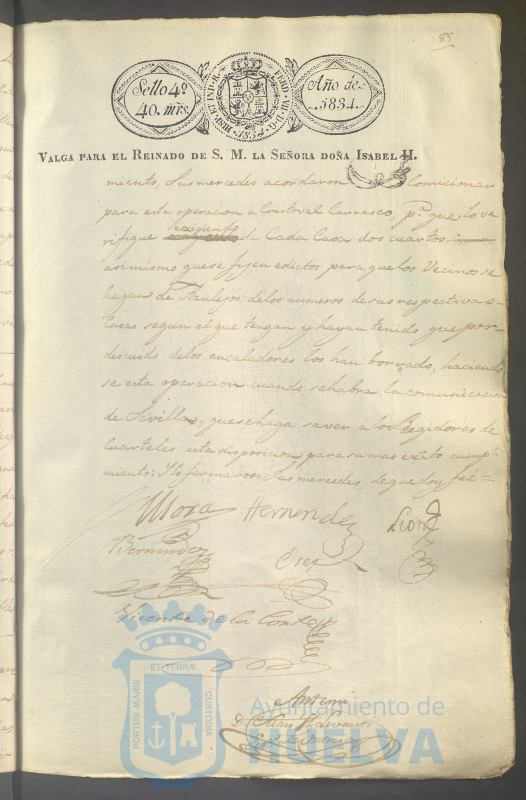 88
Sello 4º
40. mrs.
HISP. ET IND. R. FERD. VII. D. G.
1834
Año de
1834.
VALGA PARA EL REINADO DE S. M. LA SEÑORA DOÑA ISABEL II.
miento, Sus mercedes acordaron Comicionar
para esta operacion a Cristoval Carrasco, pª que lo ve
rifique de Cada Casa dos cuartos
asimismo que se fijen edictos para que los Vecinos se
hagan de Azulejos delos numeros de sus respectivas
Casas segun el que tengan y hayan tenido que por
descuido delos encaladores los han borrado, haciendo
se esta operacion cuando se habra la comunicacion
de Sevilla, que se haga saver a los Regidores de
Cuarteles esta disposicion para su mas exâto cumpli
miento: Y lo firmaron Sus mercedes, de que doy feé=
Mora Hernendez Leon
Bermudez
Vicente de la Corte
Antemi
ET TERRÆ
PORTUS MARIS
CUSTODIA
Ayuntamiento de
HUELVA